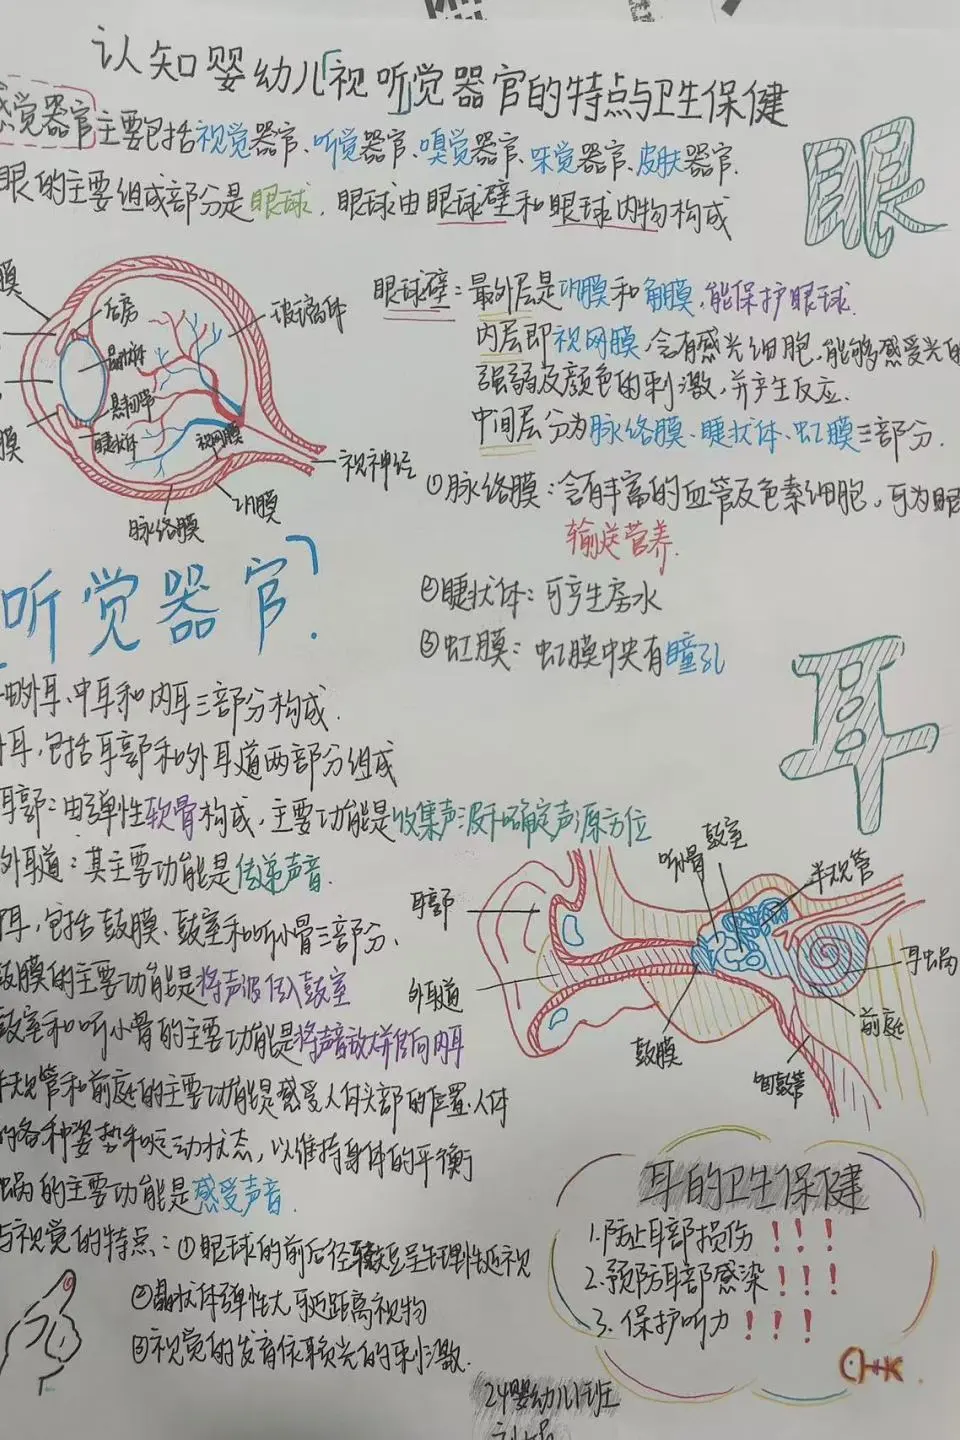 认知婴幼儿「视听」觉器官的特点与卫生保健
感觉器官主要包括视觉器官、听觉器官、嗅觉器官、味觉器官、皮肤器官.
眼的主要组成部分是眼球，眼球由眼球壁和眼球内物构成
眼
膜
膜
后房
晶状体
悬韧带
睫状体
视网膜
玻璃体
视神经
巩膜
脉络膜
眼球壁：最外层是巩膜和角膜，能保护眼球.
内层即视网膜，含有感光细胞，能够感受光的
强弱及颜色的刺激，并产生反应.
中间层分为脉络膜、睫状体、虹膜三部分.
①脉络膜：含有丰富的血管及色素细胞，可为眼
输送营养.
②睫状体：可产生房水
③虹膜：虹膜中央有瞳孔
听觉器官」.
由外耳、中耳和内耳三部分构成.
外耳，包括耳郭和外耳道两部分组成
耳郭：由弹性软骨构成，主要功能是收集声波和确定声源方位
外耳道：其主要功能是传递声音.
耳，包括鼓膜、鼓室和听小骨三部分.
鼓膜的主要功能是将声波传入鼓室
鼓室和听小骨的主要功能是将声音放大并传向内耳
半规管和前庭的主要功能是感受人体头部的位置、人体
的各种姿势和运动状态，以维持身体的平衡
蜗的主要功能是感受声音.
与视觉的特点：①眼球的前后径较短呈生理性远视
②晶状体弹性大可近距离视物
③视觉的发育依赖光的刺激.
耳
耳郭
外耳道
听小骨
鼓室
半规管
耳蜗
前庭
鼓膜
咽鼓管
耳的卫生保健
1.防止耳部损伤！！！
2.预防耳部感染！！！
3.保护听力！！！
24婴幼儿1班